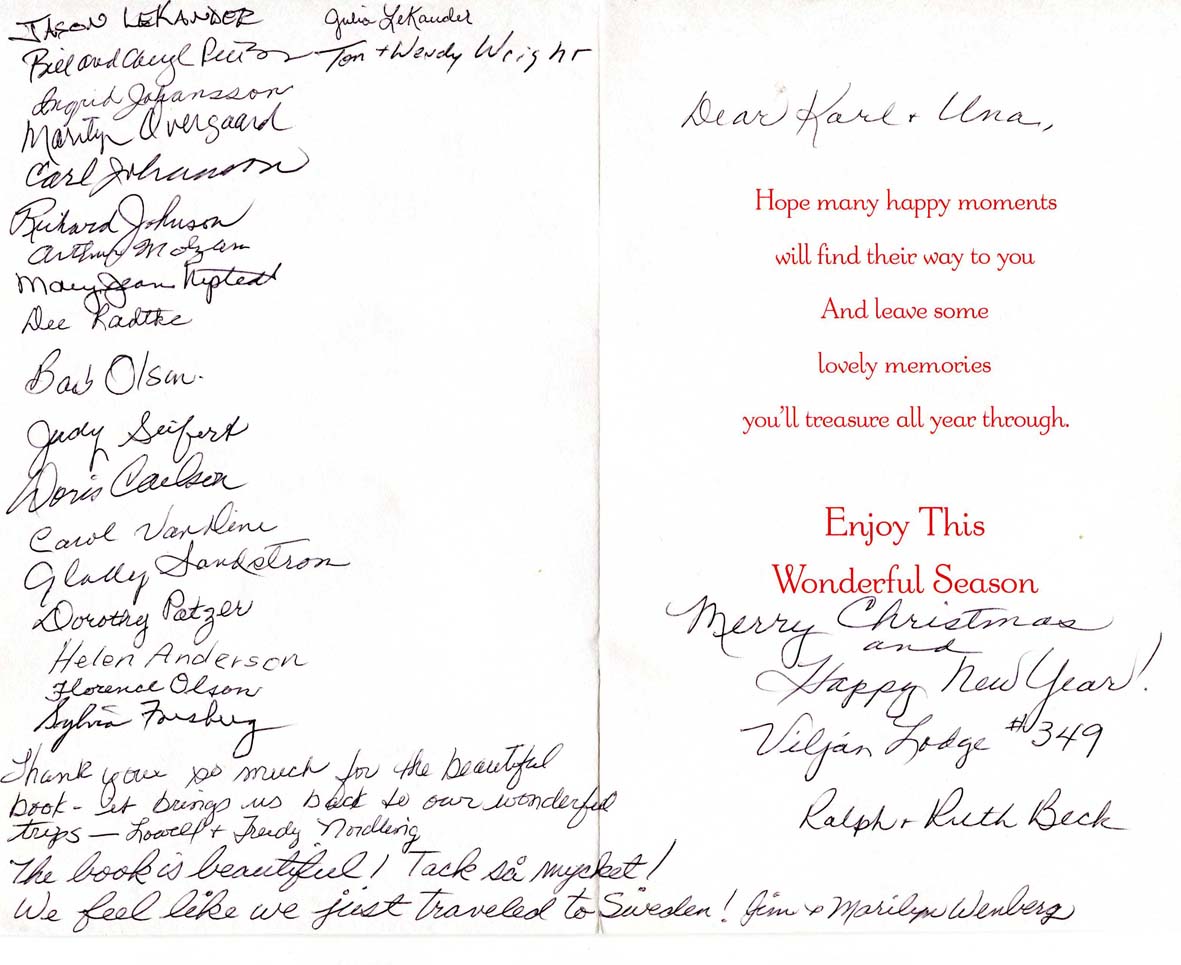 JASON LEKANDER
Julia LeKander
Bill and Caryl
Tom + Wendy Wright
Ingrid Johansson
Marilyn Overgaard
Carl Johanson
Richard Johnson
Arthur Molzam
Mary Jean
Dee Radtke
Barb Olson.
Judy Seifert
Doris Carlson
Carol VanDine
Gladly Sandstrom
Dorothy Patzer
Helen Anderson
Florence Olson
Sylvia Forsberg
Thank you so much for the beautiful
book - it brings us back to our wonderful
trips — Lowell + Trudy Nordling
The book is beautiful! Tack så mycket!
We feel like we just traveled to Sweden! Jim & Marilyn Wenberg
Dear Karl + Una,
Hope many happy moments
will find their way to you
And leave some
lovely memories
you'll treasure all year through.
Enjoy This
Wonderful Season
Merry Christmas
and
Happy New Year!
Viljan Lodge #349
Ralph + Ruth Beck